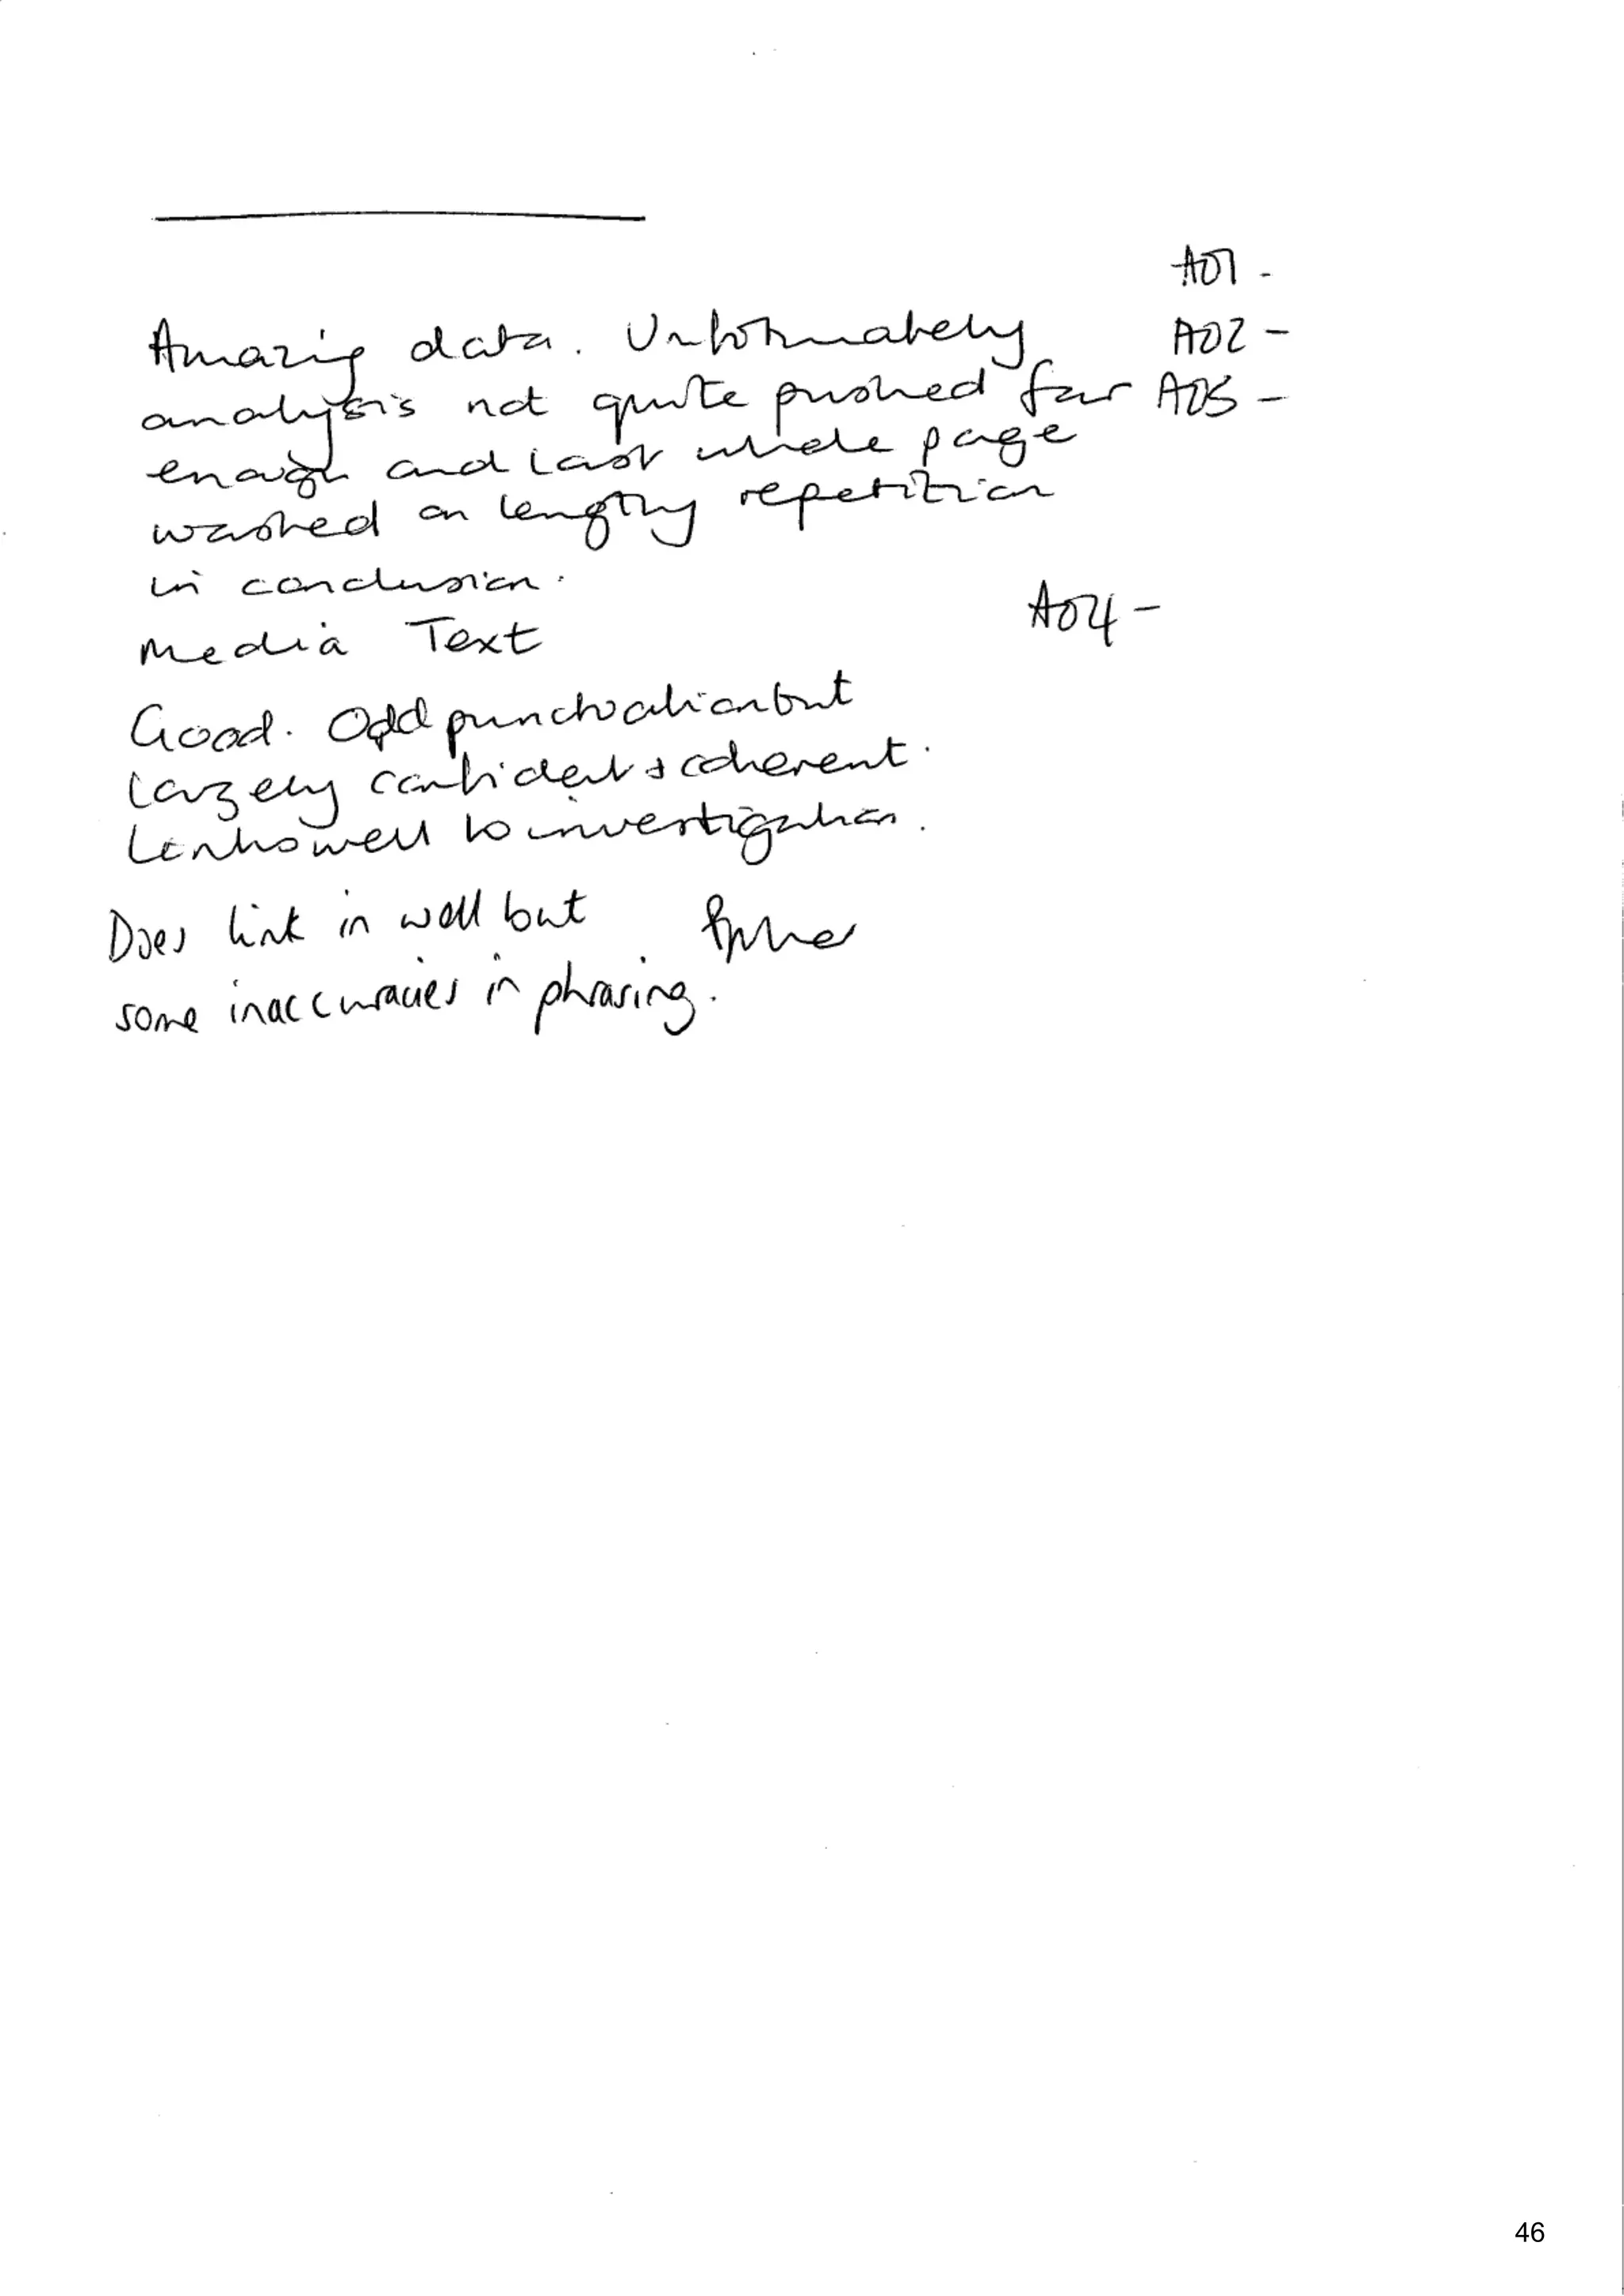 AO1 -
Amazing data. Unfortunately AO2 -
analysis not quite pushed far AO5 -
enough and last whole page
washed on lengthy repetition
in conclusion.
Media Text AO4 -
Good. Odd punctuation but
largely confident & coherent.
Links well to investigation.
Does link in well but
some inaccuracies in phrasing.
46